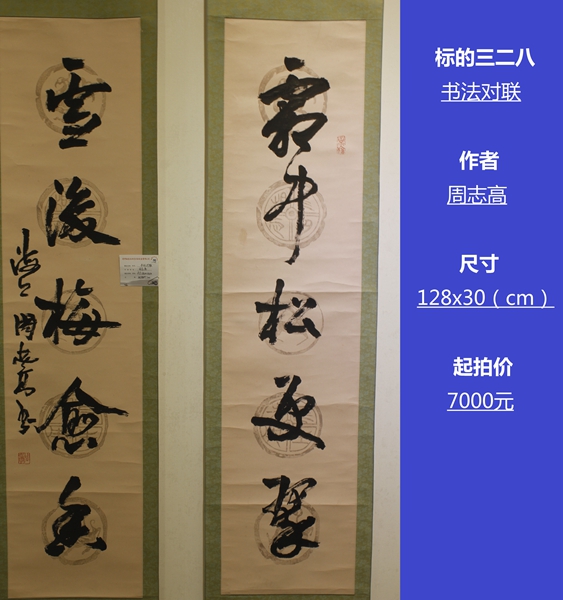 霜中松更翠
雪後梅愈香
海上周志高书
标的三二八
书法对联
作者
周志高
尺寸
128x30（cm）
起拍价
7000元